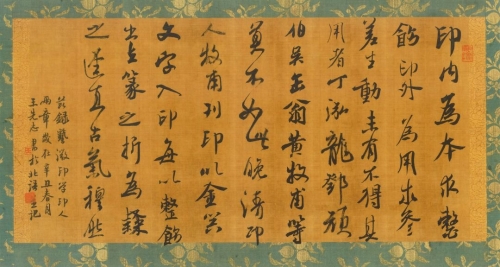 印內為本求整
飭印外為用求參
差生動未有不得其
用者丁泓龍鄧頑
伯吳缶翁黃牧甫等
莫不如此晚清印
人牧甫刊印以金器
文字入印每以整飭
出之篆之折為錄
之遂直古氣穆然
印學印人
兩章歲在辛丑春月
王先志書於北